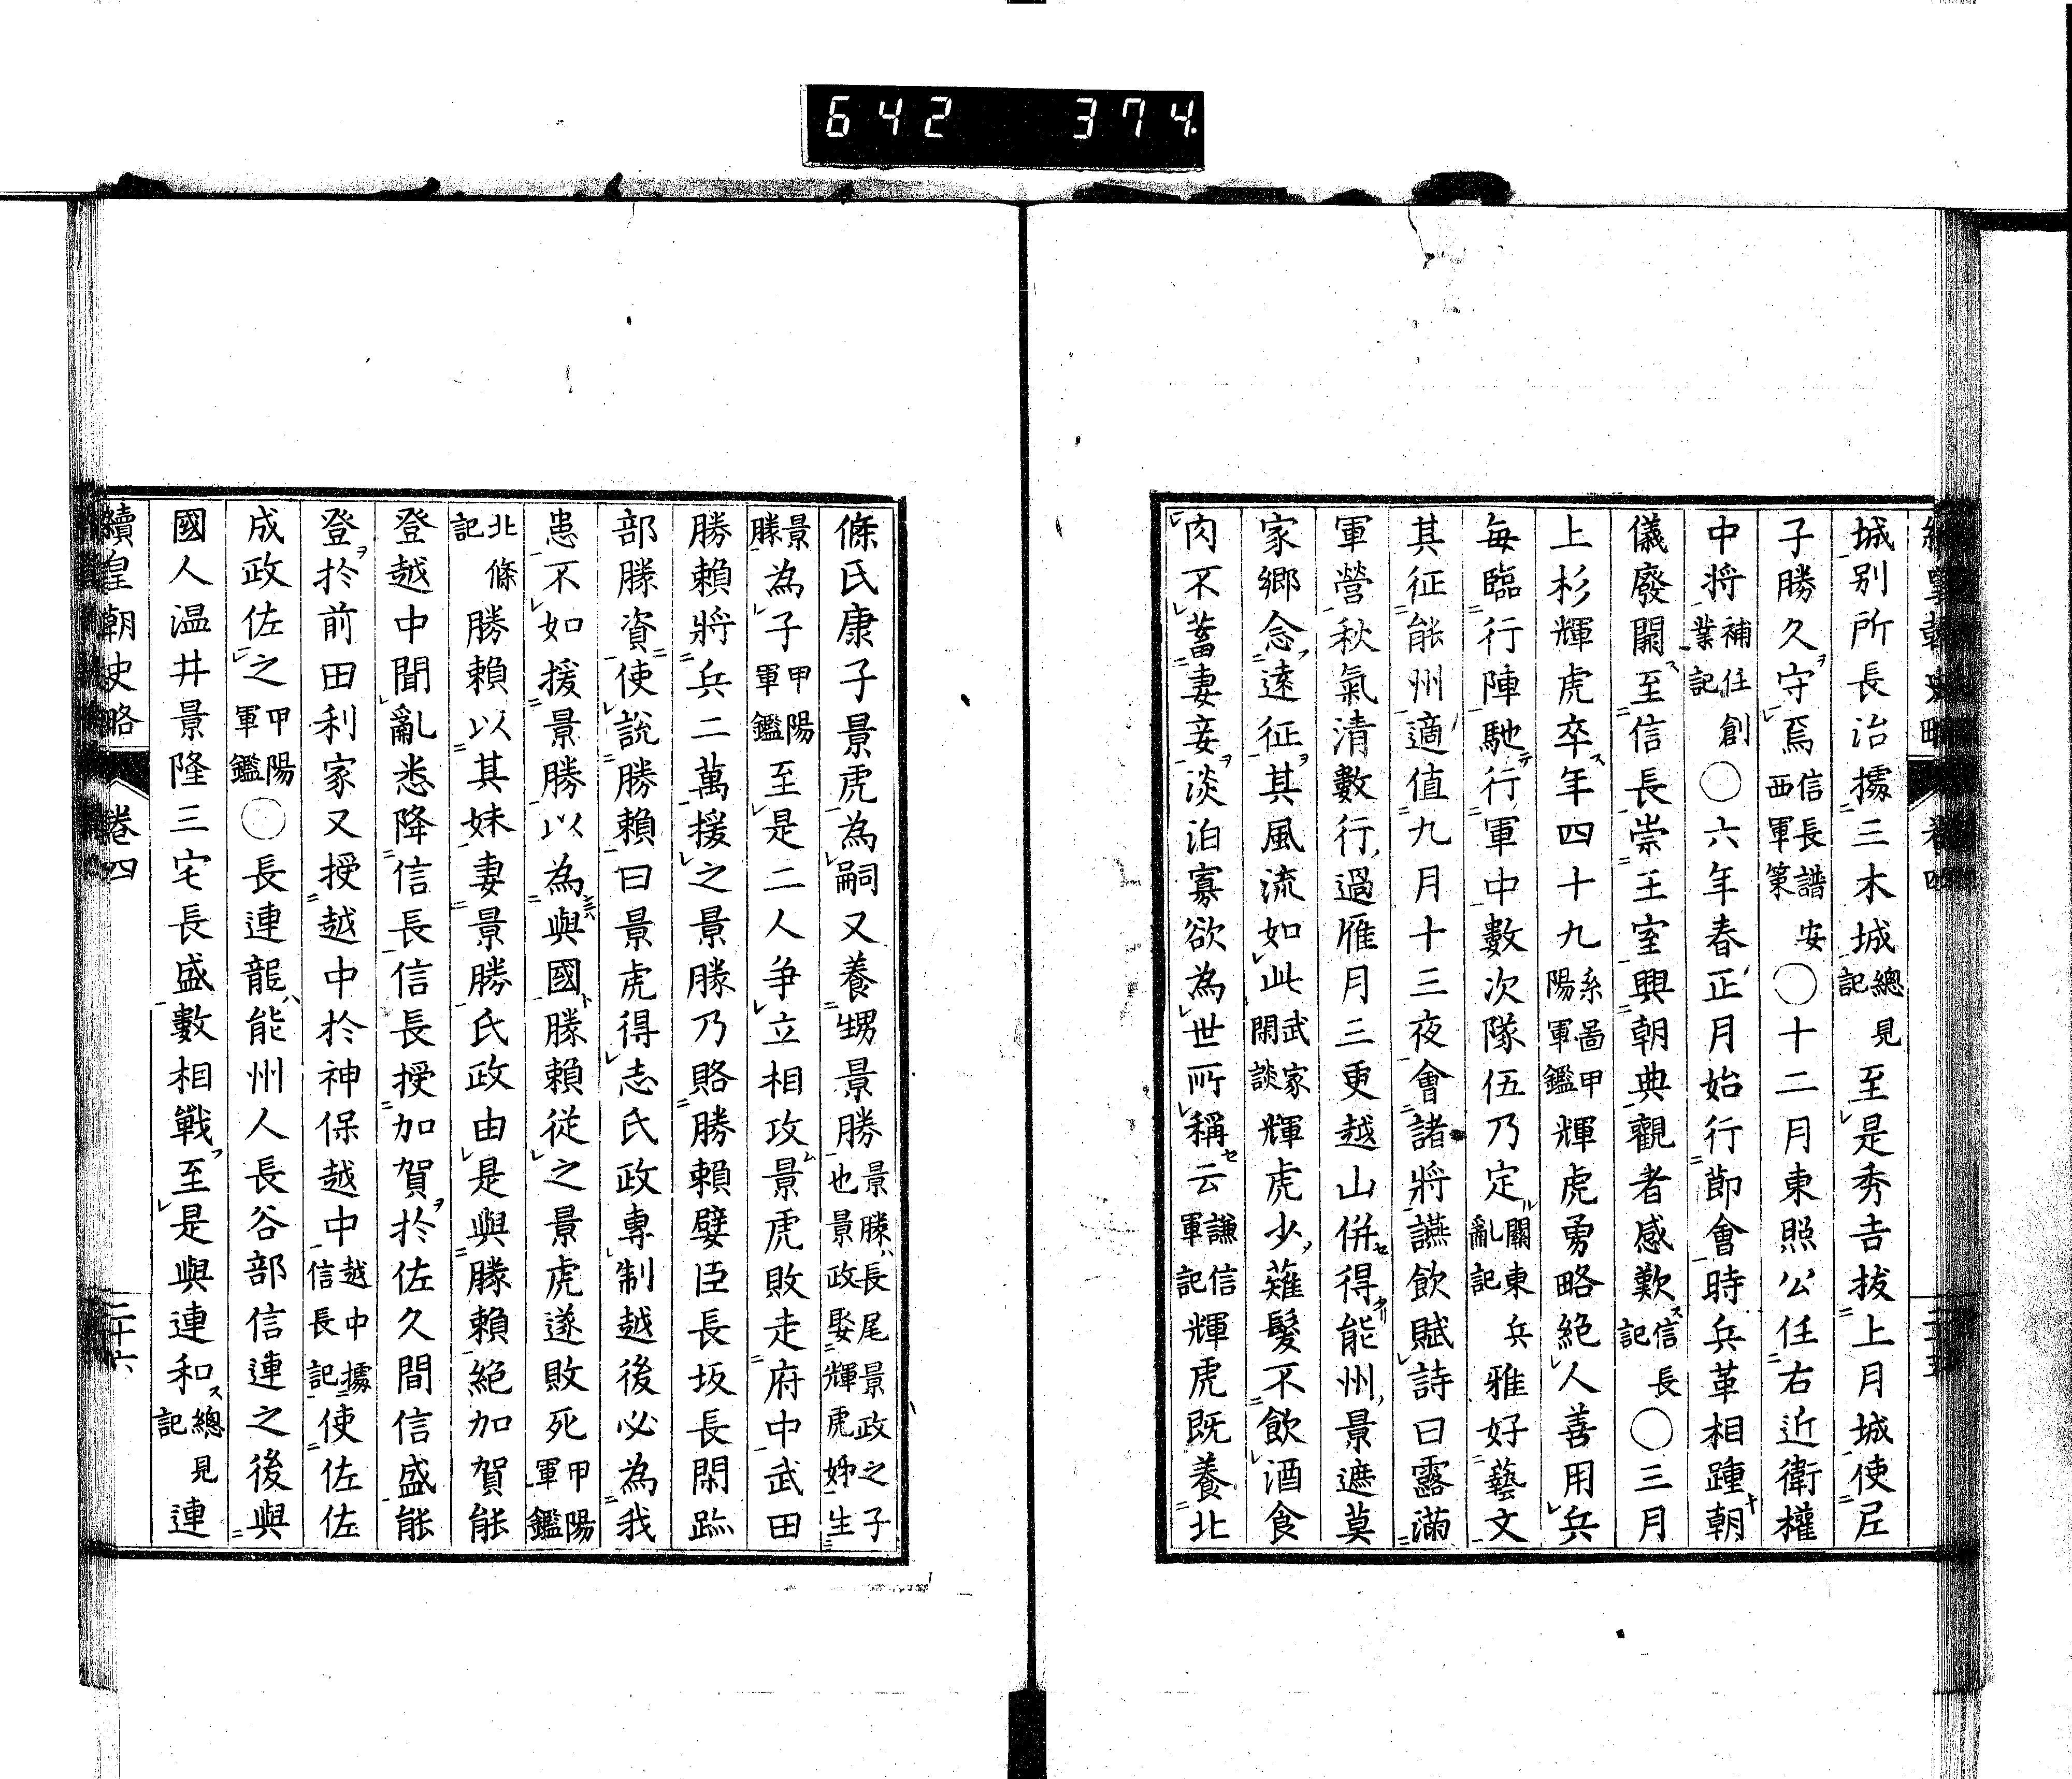 642 374.
城別所長治據三木城總見記至是秀吉拔上月城使尼
子勝久守焉信長譜安西軍策〇十二月東照公任右近衛權
中將補任創業記〇六年春正月始行節會時兵革相踵朝
儀廢闕至信長崇王室興朝典觀者感歎信長記〇三月
上杉輝虎卒年四十九系圖甲陽軍鑑輝虎勇略絶人善用兵
毎臨行陣馳行軍中數次隊伍乃定關東兵亂記雅好藝文
其征能州適值九月十三夜會諸將讌飲賦詩曰露滿
軍營秋氣清數行過雁月三更越山併得能州景遮莫
家郷念遠征其風流如此武家閑談輝虎少薙髮不飲酒食
肉不蓄妻妾淡泊寡欲為世所稱云謙信軍記輝虎既養北
條氏康子景虎為嗣又養甥景勝景勝長尾景政之子也景政娶輝虎姊生
景勝為子甲陽軍鑑至是二人争立相攻景虎敗走府中武田
勝賴將兵二萬援之景勝乃賂勝賴嬖臣長坂長閑跡
部勝資使說勝賴曰景虎得志氏政專制越後必為我
患不如援景勝以為與國勝賴從之景虎遂敗死甲陽軍鑑
北條記勝賴以其妹妻景勝氏政由是與勝賴絶加賀能
登越中聞亂悉降信長信長授加賀於佐久間信盛能
登於前田利家又授越中於神保越中越中據信長記使佐佐
成政佐之甲陽軍鑑〇長連龍能州人長谷部信連之後與
國人温井景隆三宅長盛數相戰至是與連和總見記連
續皇朝史略 卷四 二十六